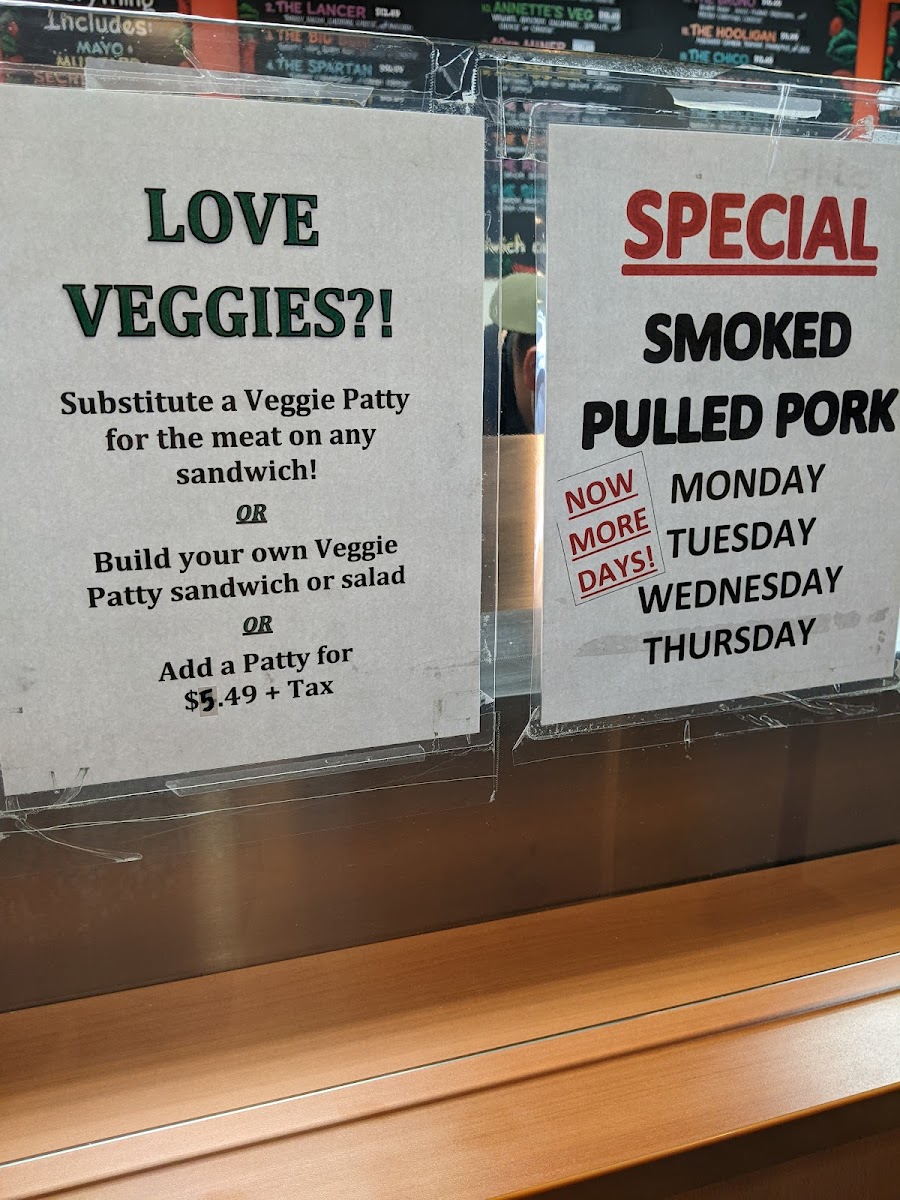 Includes:
MAYO
2. THE LANCER
4. THE SPARTAN
ANNETTE'S VEG
THE HOOLIGAN
THE CHICO
LOVE
VEGGIES?!
Substitute a Veggie Patty
for the meat on any
sandwich!
OR
Build your own Veggie
Patty sandwich or salad
OR
Add a Patty for
$5.49 + Tax
SPECIAL
SMOKED
PULLED PORK
NOW
MORE
DAYS!
MONDAY
TUESDAY
WEDNESDAY
THURSDAY